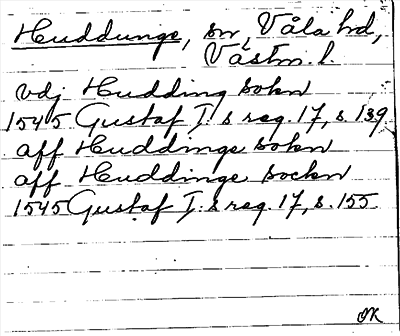 Huddunge, sn, Våla hd,
Västm. l.
vdj Hudding sokn
1545 Gustaf I:s reg. 17, s. 139
aff Huddinge sokn
aff Huddinge sockn
1545 Gustaf I:s reg. 17, s. 155